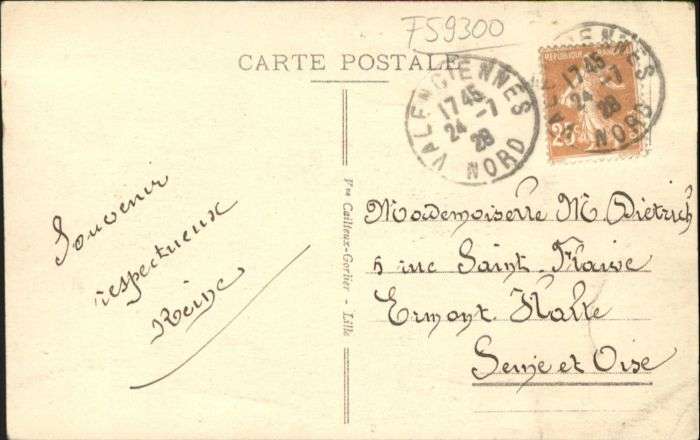 F59300
CARTE POSTALE
VALENCIENNES
17 45
24 -7
28
NORD
VALENCIENNES
17 45
24 -7
28
NORD
REPUBLIQUE
25c
Vve Cailteux-Gorlier - Lille
Souvenir
respectueux
Reine
Mademoiselle M. Dietrich
5 rue Saint-Flaive
Ermont-Halte
Seine et Oise